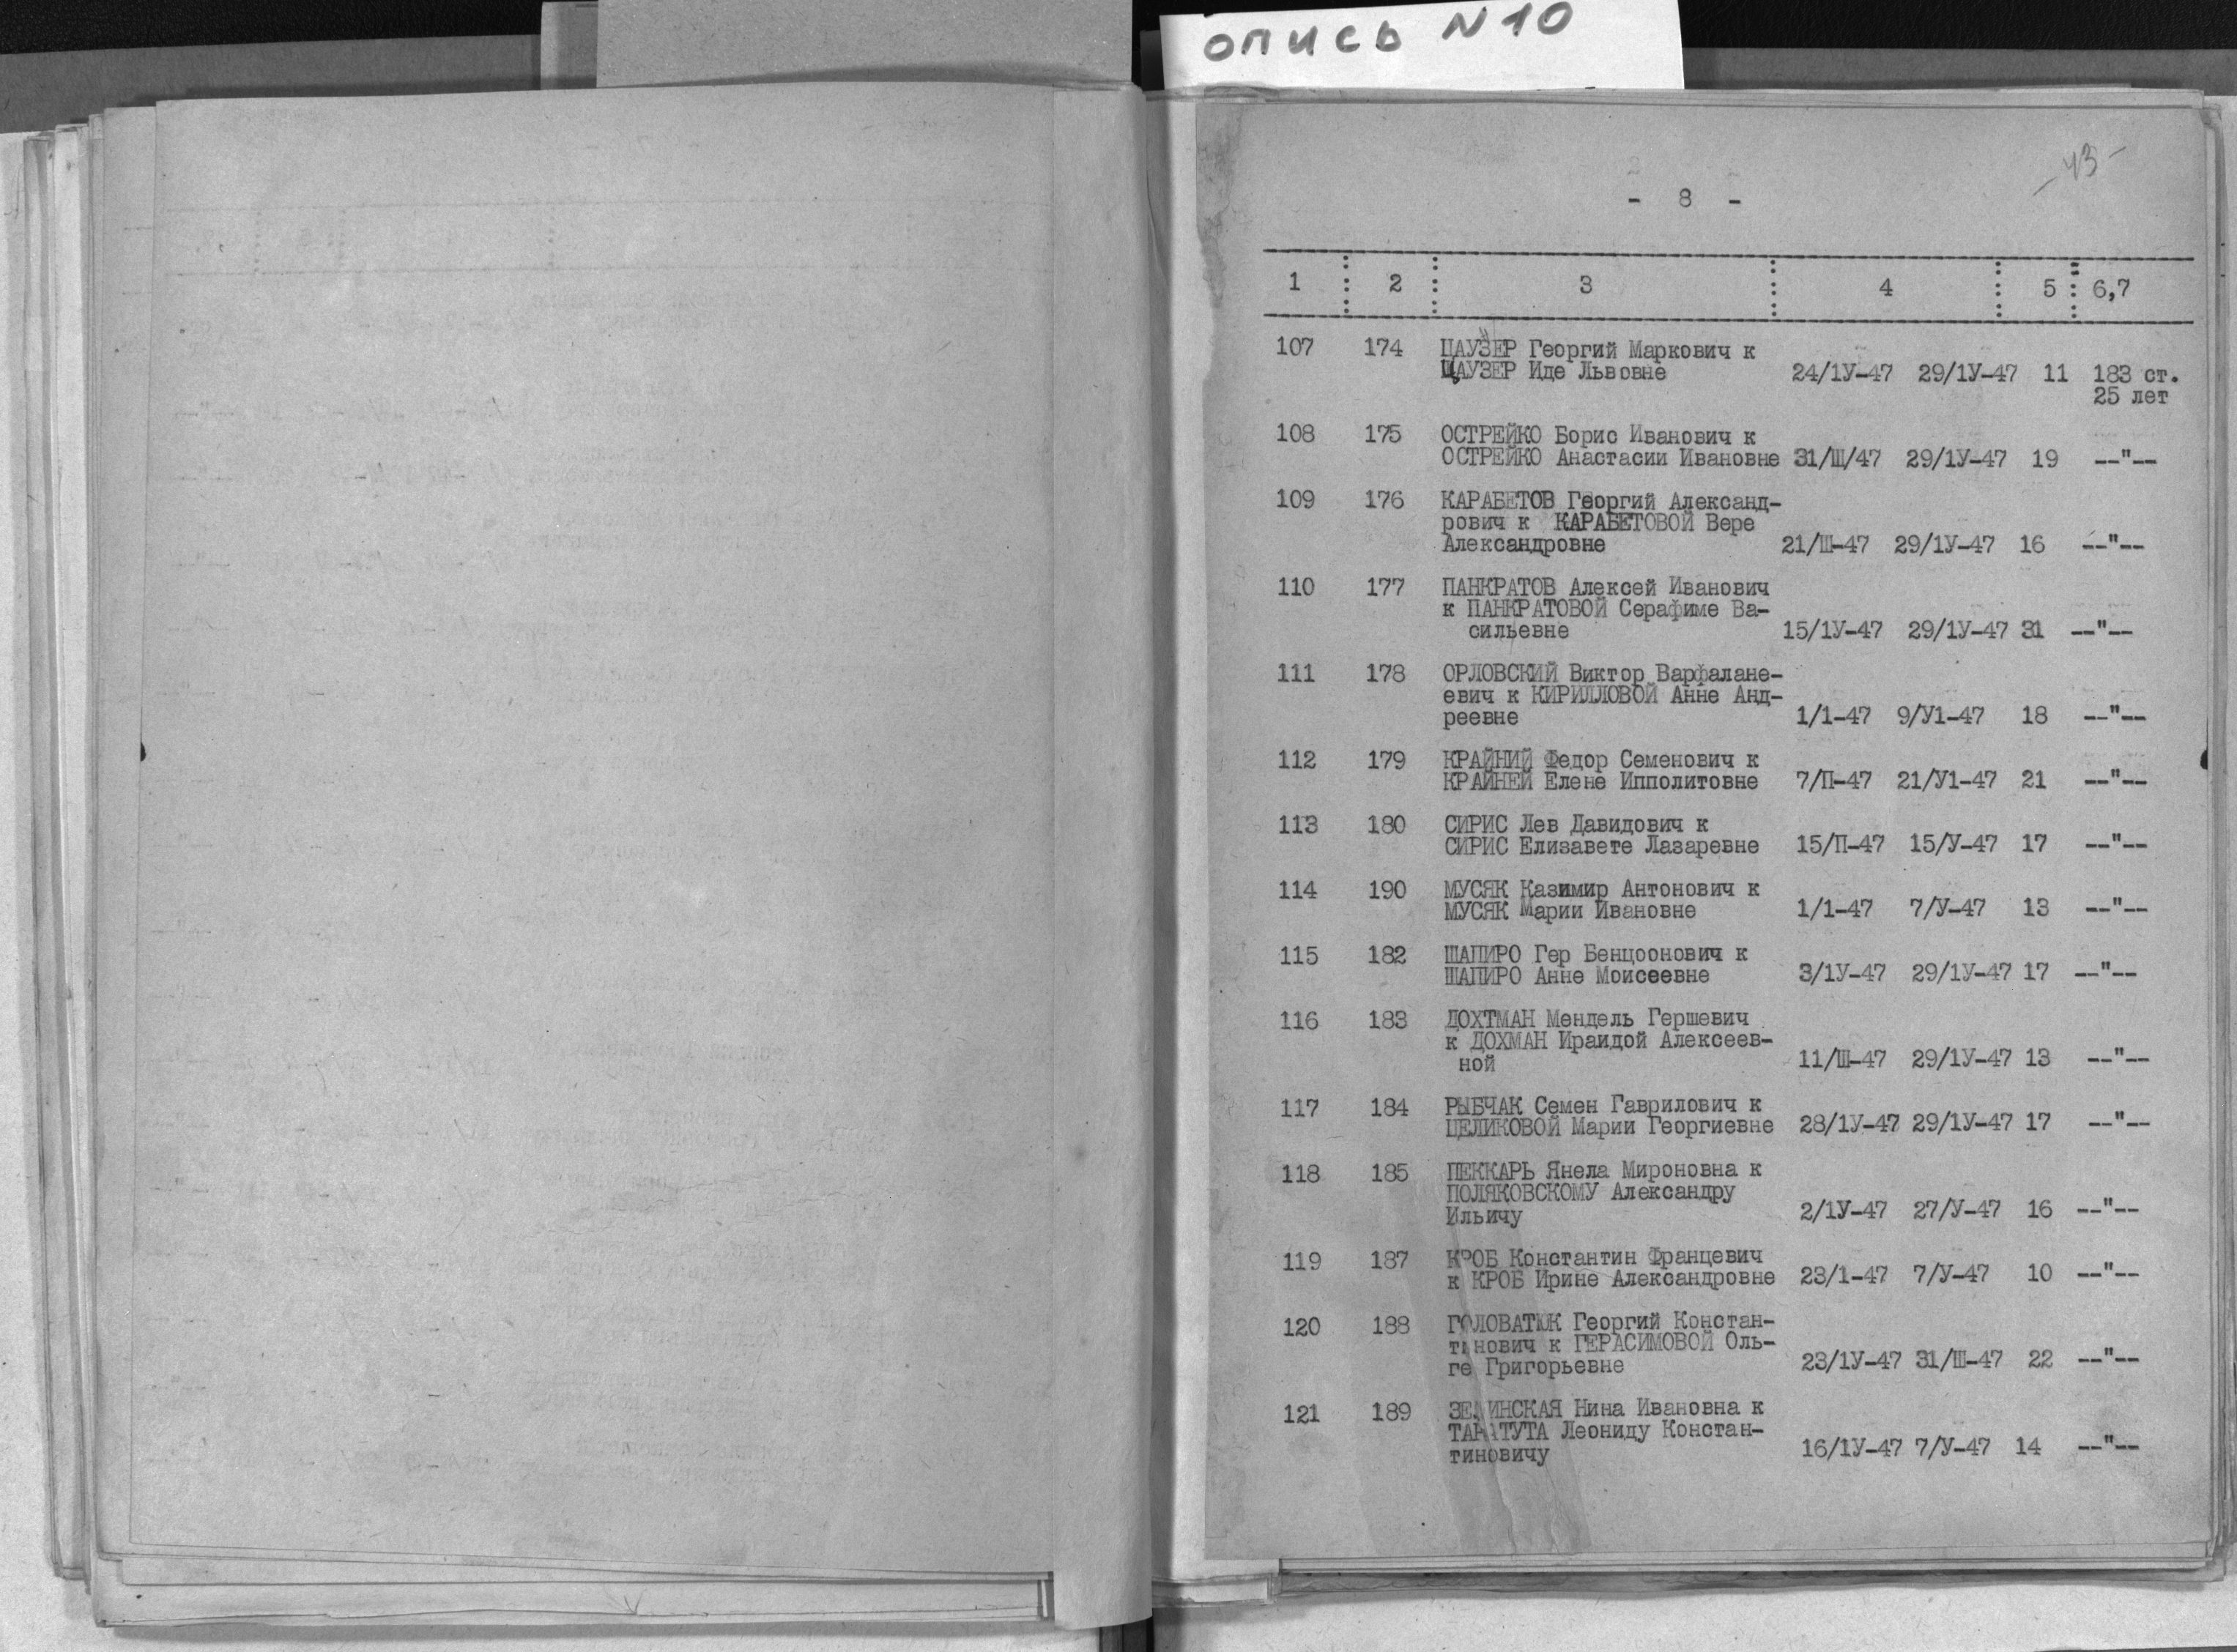 опись N10
-43-
- 8 -
1 2 3 4 5 6,7
107 174 ЦАУЗЕР Георгий Маркович к
ЦАУЗЕР Иде Львовне 24/1У-47 29/1У-47 11 183 ст.
25 лет
108 175 ОСТРЕЙКО Борис Иванович к
ОСТРЕЙКО Анастасии Ивановне 31/Ш/47 29/1У-47 19 --"--
109 176 КАРАБЕТОВ Георгий Александ-
рович к КАРАБЕТОВОЙ Вере
Александровне 21/Ш-47 29/1У-47 16 --"--
110 177 ПАНКРАТОВ Алексей Иванович
к ПАНКРАТОВОЙ Серафиме Ва-
сильевне 15/1У-47 29/1У-47 31 --"--
111 178 ОРЛОВСКИЙ Виктор Варфалане-
евич к КИРИЛЛОВОЙ Анне Анд-
реевне 1/1-47 9/У1-47 18 --"--
112 179 КРАЙНИЙ Федор Семенович к
КРАЙНЕЙ Елене Ипполитовне 7/П-47 21/У1-47 21 --"--
113 180 СИРИС Лев Давидович к
СИРИС Елизавете Лазаревне 15/П-47 15/У-47 17 --"--
114 190 МУСЯК Казимир Антонович к
МУСЯК Марии Ивановне 1/1-47 7/У-47 13 --"--
115 182 ШАПИРО Гер Бенцоонович к
ШАПИРО Анне Моисеевне 3/1У-47 29/1У-47 17 --"--
116 183 ДОХТМАН Мендель Гершевич
к ДОХМАН Ираидой Алексеев-
ной 11/Ш-47 29/1У-47 13 --"--
117 184 РЫБЧАК Семен Гаврилович к
ЦЕЛИКОВОЙ Марии Георгиевне 28/1У-47 29/1У-47 17 --"--
118 185 ПЕККАРЬ Янела Мироновна к
ПОЛЯКОВСКОМУ Александру
Ильичу 2/1У-47 27/У-47 16 --"--
119 187 КРОБ Константин Францевич
к КРОБ Ирине Александровне 23/1-47 7/У-47 10 --"--
120 188 ГОЛОВАТЮК Георгий Констан-
тинович к ГЕРАСИМОВОЙ Оль-
ге Григорьевне 23/1У-47 31/Ш-47 22 --"--
121 189 ЗЕЛИНСКАЯ Нина Ивановна к
ТАРАТУТА Леониду Констан-
тиновичу 16/1У-47 7/У-47 14 --"--